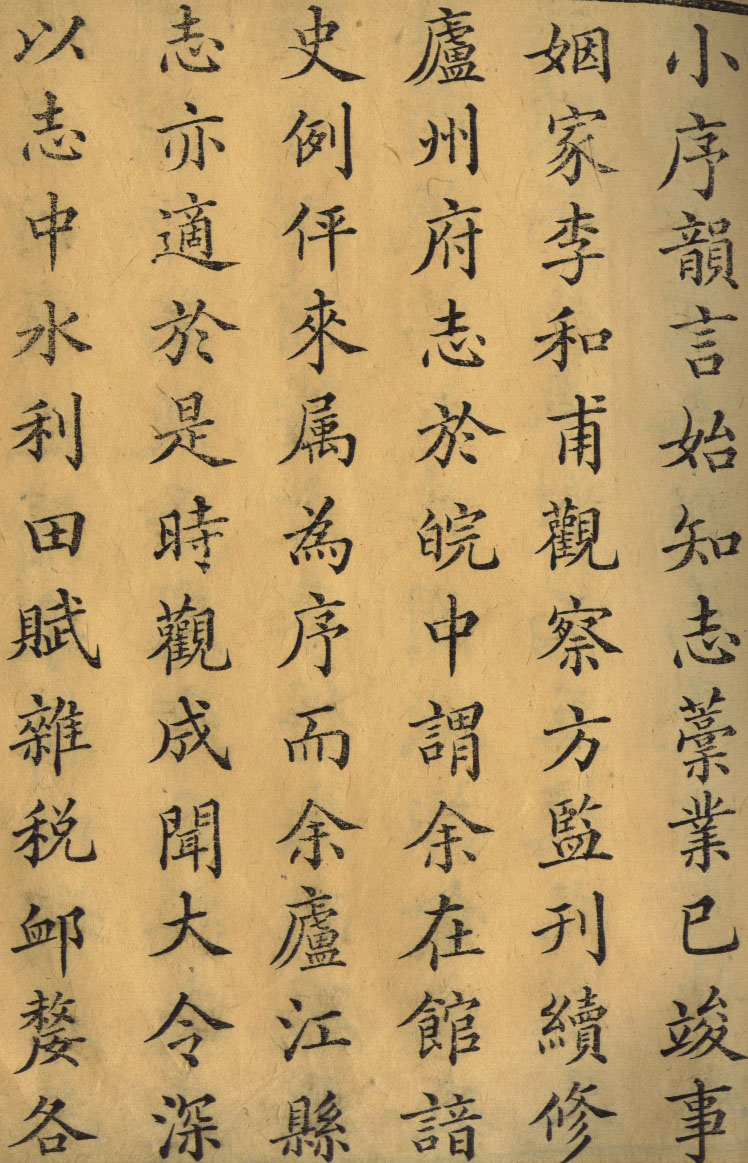 小序韻言始知志藳業已竣事
姻家李和甫觀察方監刊續修
廬州府志於皖中謂余在館諳
史例伻來属為序而余廬江縣
志亦適於是時觀成聞大令深
以志中水利田賦雜稅卹嫠各